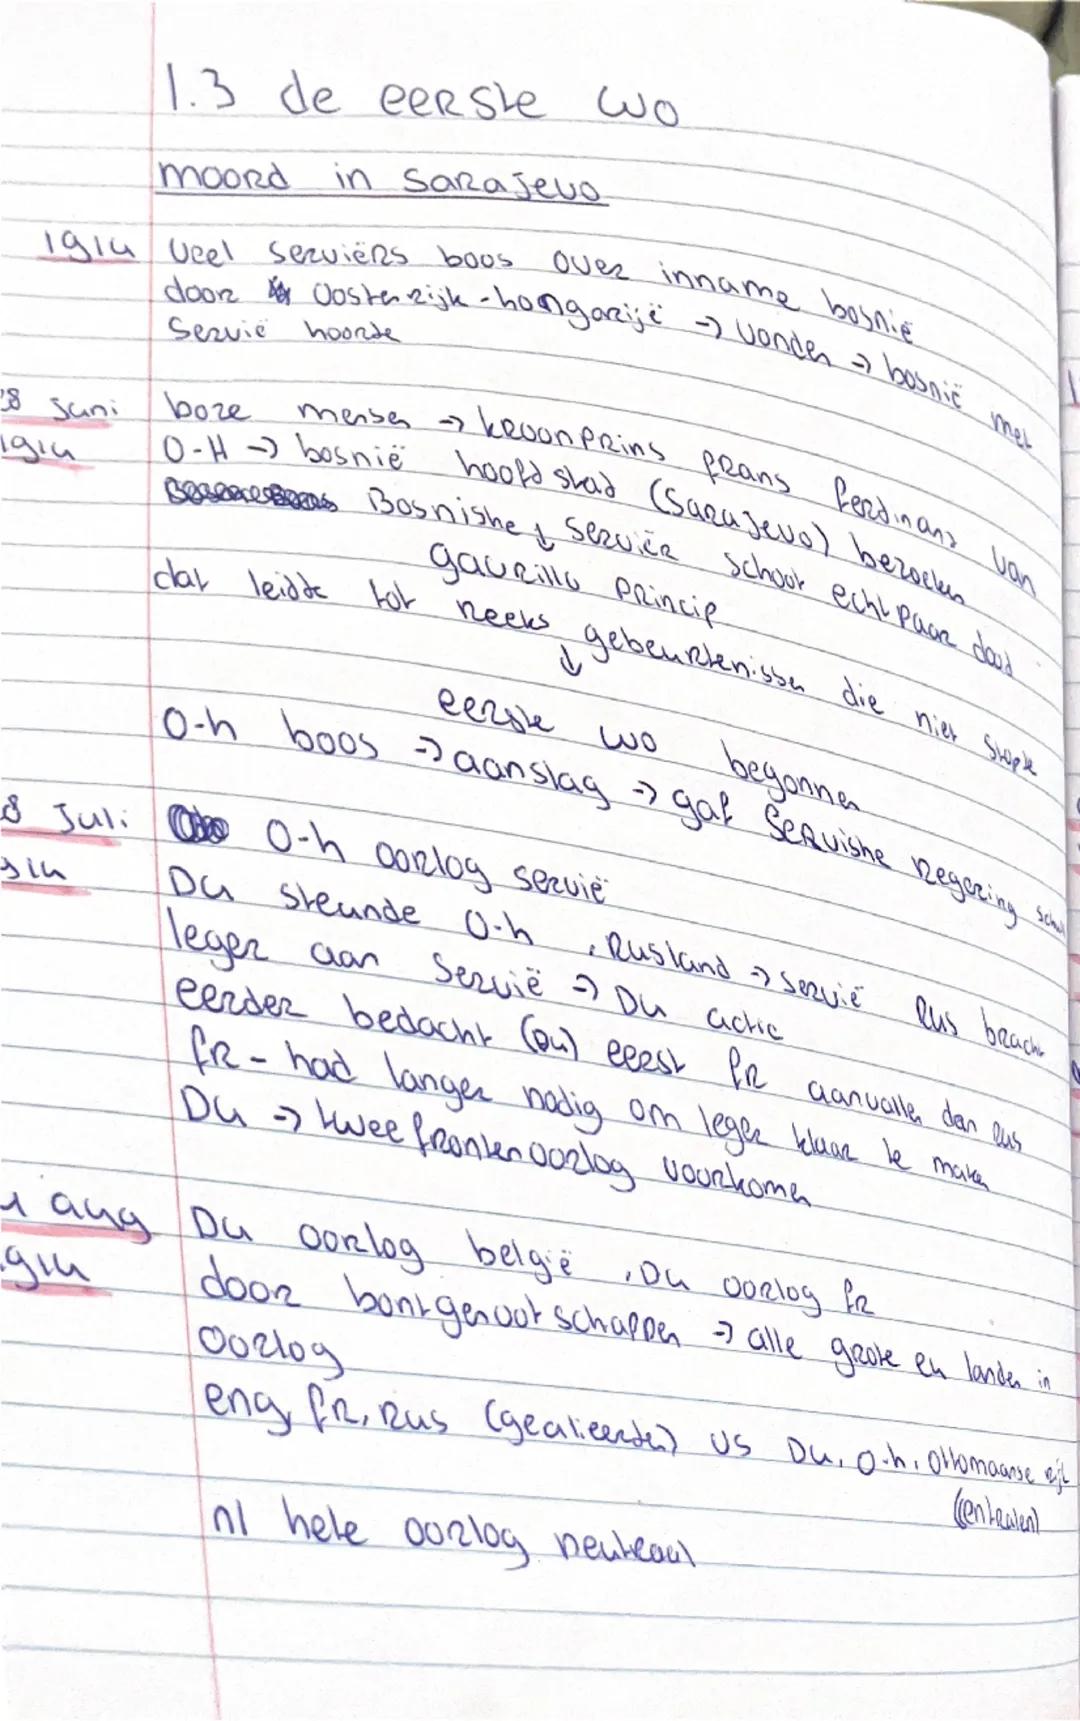 1.3 de eerste wo
moord in Sarajevo
1914 Veel serviërs boos over inname bosnië
door Oostenrijk-hongarije → vonden → bosnië met
Servië hoorde
8 juni boze mensen → kroonprins frans ferdinand van
1914 O-H → bosnië hoofdstad (Sarajevo) bezoeken
Bosnishe ↓ Serviër schoot echtpaar dood
gavrillo princip
dat leidde tot reeks gebeurtenissen die niet stopte
↓
eerste wo begonnen
O-h boos → aanslag → gaf Servishe regering
8 Juli O-h oorlog servië
Du steunde O-h, Rusland → Servië Rus bracht
leger aan Servië → Du actie
eerder bedacht (Du) eerst fr aanvallen dan rus
fr - had langer nodig om leger klaar te maken
Du → twee fronten oorlog voorkomen
aug Du oorlog belgië, Du oorlog fr
door bontgenootschappen → alle grote eu landen in
oorlog
eng, fr, rus (gealieerden) VS Du, O-h, Ottomaanse rijk
(centralen)
nl hele oorlog neutraal